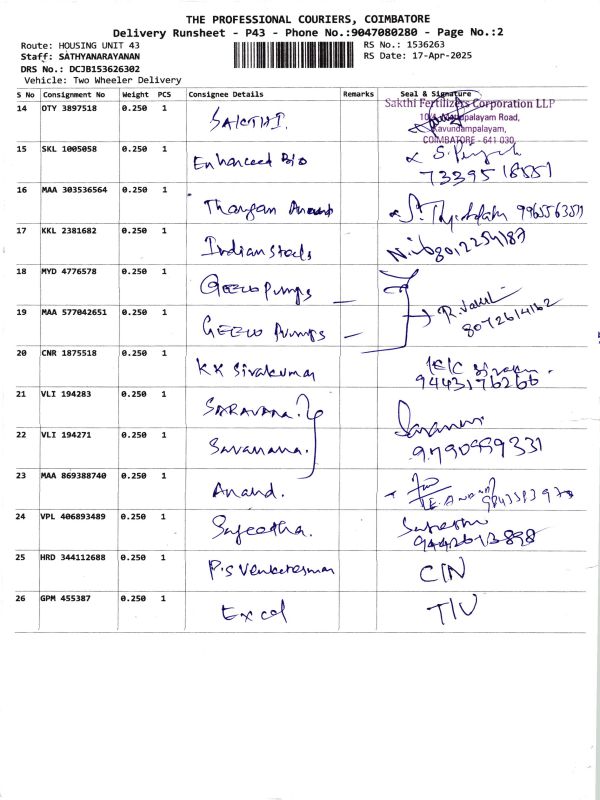 THE PROFESSIONAL COURIERS, COIMBATORE
Delivery Runsheet - P43 - Phone No.:9047080280 - Page No.:2
Route: HOUSING UNIT 43
RS No.: 1536263
Staff: SATHYANARAYANAN
RS Date: 17-Apr-2025
DRS No.: DCJB153626302
Vehicle: Two Wheeler Delivery
S No Consignment No Weight PCS Consignee Details Remarks Seal & Signature
14 OTY 3897518 0.250 1 SAKTHI.
Sakthi Fertilizers Corporation LLP
palayam Road,
Kavundampalayam,
COIMBATORE - 641 030.
15 SKL 1005058 0.250 1 Enhanced Bio
16 MAA 303536564 0.250 1 Thangam Anand
17 KKL 2381682 0.250 1 Indian stocks
18 MYD 4776578 0.250 1 Geeco Pumps
19 MAA 577042651 0.250 1 Geeco Pumps
8072614162
20 CNR 1875518 0.250 1 KK Sivakumar
9443176266
21 VLI 194283 0.250 1 SARAVANA.
22 VLI 194271 0.250 1 Saravana.
23 MAA 869388740 0.250 1 Anand.
24 VPL 406893489 0.250 1 Sajeetha.
25 HRD 344112688 0.250 1 P.S Venkatesman C/N
26 GPM 455387 0.250 1 Excel T/V